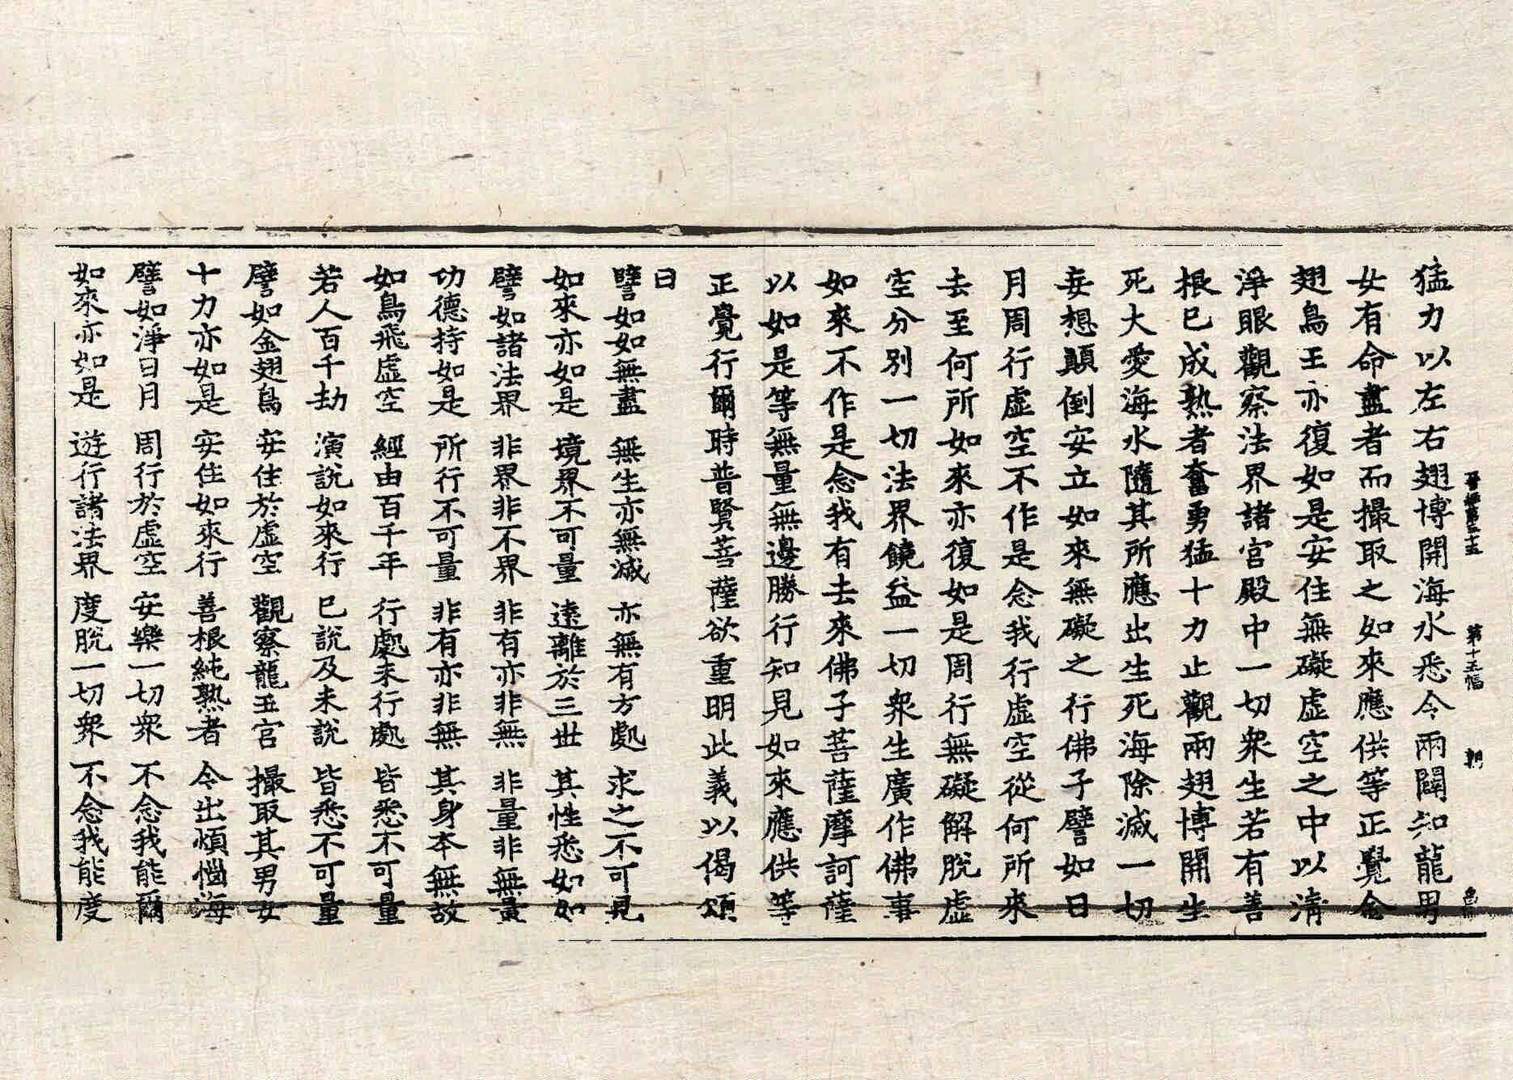 晉經第三十五 第十五幅 朝
猛力以左右翅博開海水悉令兩闢知龍男
女有命盡者而撮取之如來應供等正覺金
翅鳥王亦復如是安住無礙虛空之中以清
淨眼觀察法界諸宮殿中一切衆生若有善
根已成熟者奮勇猛十力止觀兩翅博開生
死大愛海水隨其所應出生死海除滅一切
妄想顛倒安立如來無礙之行佛子譬如日
月周行虛空不作是念我行虛空從何所來
去至何所如來亦復如是周行無礙解脫虛
空分別一切法界饒益一切衆生廣作佛事
如來不作是念我有去來佛子菩薩摩訶薩
以如是等無量無邊勝行知見如來應供等
正覺行爾時普賢菩薩欲重明此義以偈頌
曰
譬如如無盡 無生亦無滅 亦無有方處 求之不可見
如來亦如是 境界不可量 遠離於三世 其性悉如如
譬如諸法界 非界非不界 非有亦非無 非量非無量
功德持如是 所行不可量 非有亦非無 其身本無故
如鳥飛虛空 經由百千年 行處未行處 皆悉不可量
若人百千劫 演說如來行 已說及未說 皆悉不可量
譬如金翅鳥 安住於虛空 觀察龍王宮 撮取其男女
十力亦如是 安住如來行 善根純熟者 令出煩惱海
譬如淨日月 周行於虛空 安樂一切衆 不念我能爾
如來亦如是 遊行諸法界 度脫一切衆 不念我能度